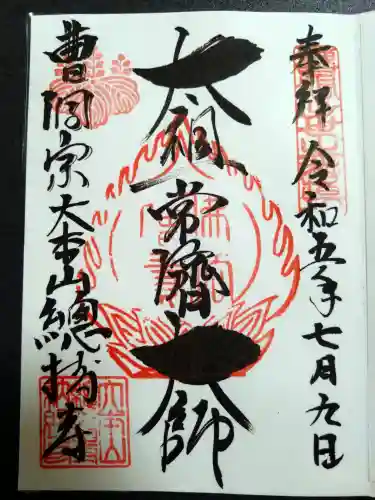 奉拝 令和五年七月九日
太祖常濟大師
曹洞宗大本山總持寺